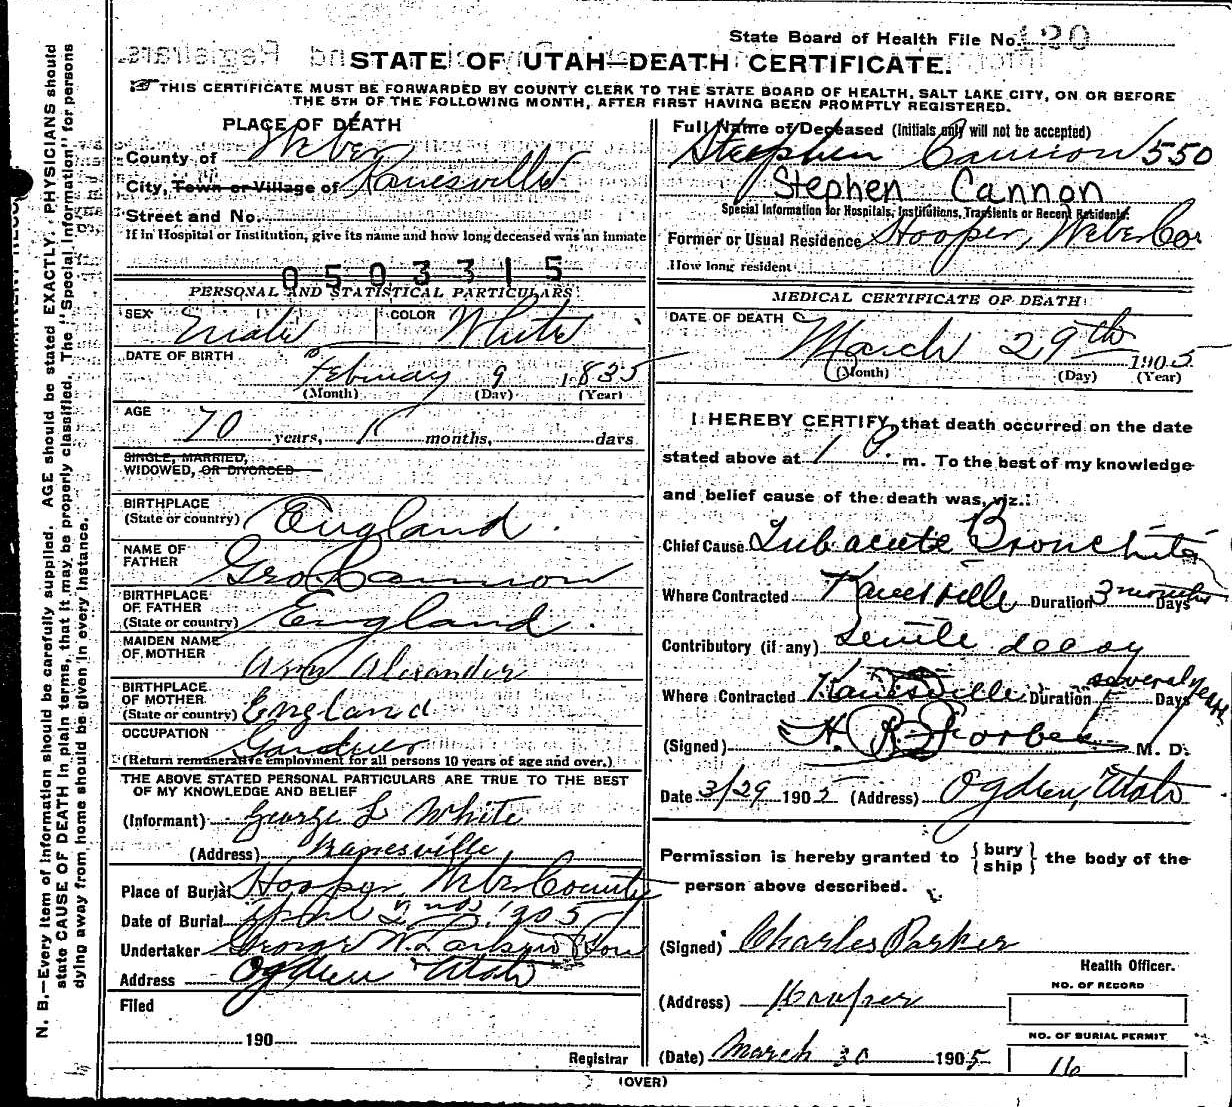 State Board of Health File No. 130
STATE OF UTAH—DEATH CERTIFICATE.
THIS CERTIFICATE MUST BE FORWARDED BY COUNTY CLERK TO THE STATE BOARD OF HEALTH, SALT LAKE CITY, ON OR BEFORE
THE 5TH OF THE FOLLOWING MONTH, AFTER FIRST HAVING BEEN PROMPTLY REGISTERED.
PLACE OF DEATH
County of Weber
City, Town or Village of Kanesville
Street and No.
If in Hospital or Institution, give its name and how long deceased was an inmate
0503315
PERSONAL AND STATISTICAL PARTICULARS
SEX Male COLOR White
DATE OF BIRTH
February 9 1835
(Month) (Day) (Year)
AGE
70 years, 1 months, days
SINGLE, MARRIED,
WIDOWED, OR DIVORCED
BIRTHPLACE
(State or country) England
NAME OF
FATHER Geo. Cannon
BIRTHPLACE
OF FATHER
(State or country) England
MAIDEN NAME
OF MOTHER
Alexander
BIRTHPLACE
OF MOTHER
(State or country) England
OCCUPATION
Gardner
(Return remunerative employment for all persons 10 years of age and over.)
THE ABOVE STATED PERSONAL PARTICULARS ARE TRUE TO THE BEST
OF MY KNOWLEDGE AND BELIEF
(Informant) George L White
(Address) Kanesville
Place of Burial Hooper, Weber County
Date of Burial April 2nd, 1905
Undertaker George W. Larkin & Son
Address Ogden Utah
Filed
190
Registrar
Full Name of Deceased (Initials only will not be accepted)
Stephen Cannon 550
Stephen Cannon
Special Information for Hospitals, Institutions, Transients or Recent Residents:
Former or Usual Residence Hooper, Weber Co.
How long resident
MEDICAL CERTIFICATE OF DEATH
DATE OF DEATH
March 29th 1905
(Month) (Day) (Year)
I HEREBY CERTIFY, that death occurred on the date
stated above at 1 P. m. To the best of my knowledge
and belief cause of the death was, viz.:
Chief Cause Subacute Bronchitis
Where Contracted Kanesville Duration 3 months Days
Contributory (if any) Senile decay
Where Contracted Kanesville Duration several years Days
(Signed) H. B. Forbes M. D.
Date 3/29 1905 (Address) Ogden, Utah
Permission is hereby granted to { bury ship } the body of the
person above described.
(Signed) Charles Parker
Health Officer.
(Address) Hooper
NO. OF RECORD
NO. OF BURIAL PERMIT
(Date) March 30 1905 16
(OVER)
N. B.—Every item of information should be carefully supplied. AGE should be stated EXACTLY. PHYSICIANS should
state CAUSE OF DEATH in plain terms, that it may be properly classified. The "Special Information" for persons
dying away from home should be given in every instance.